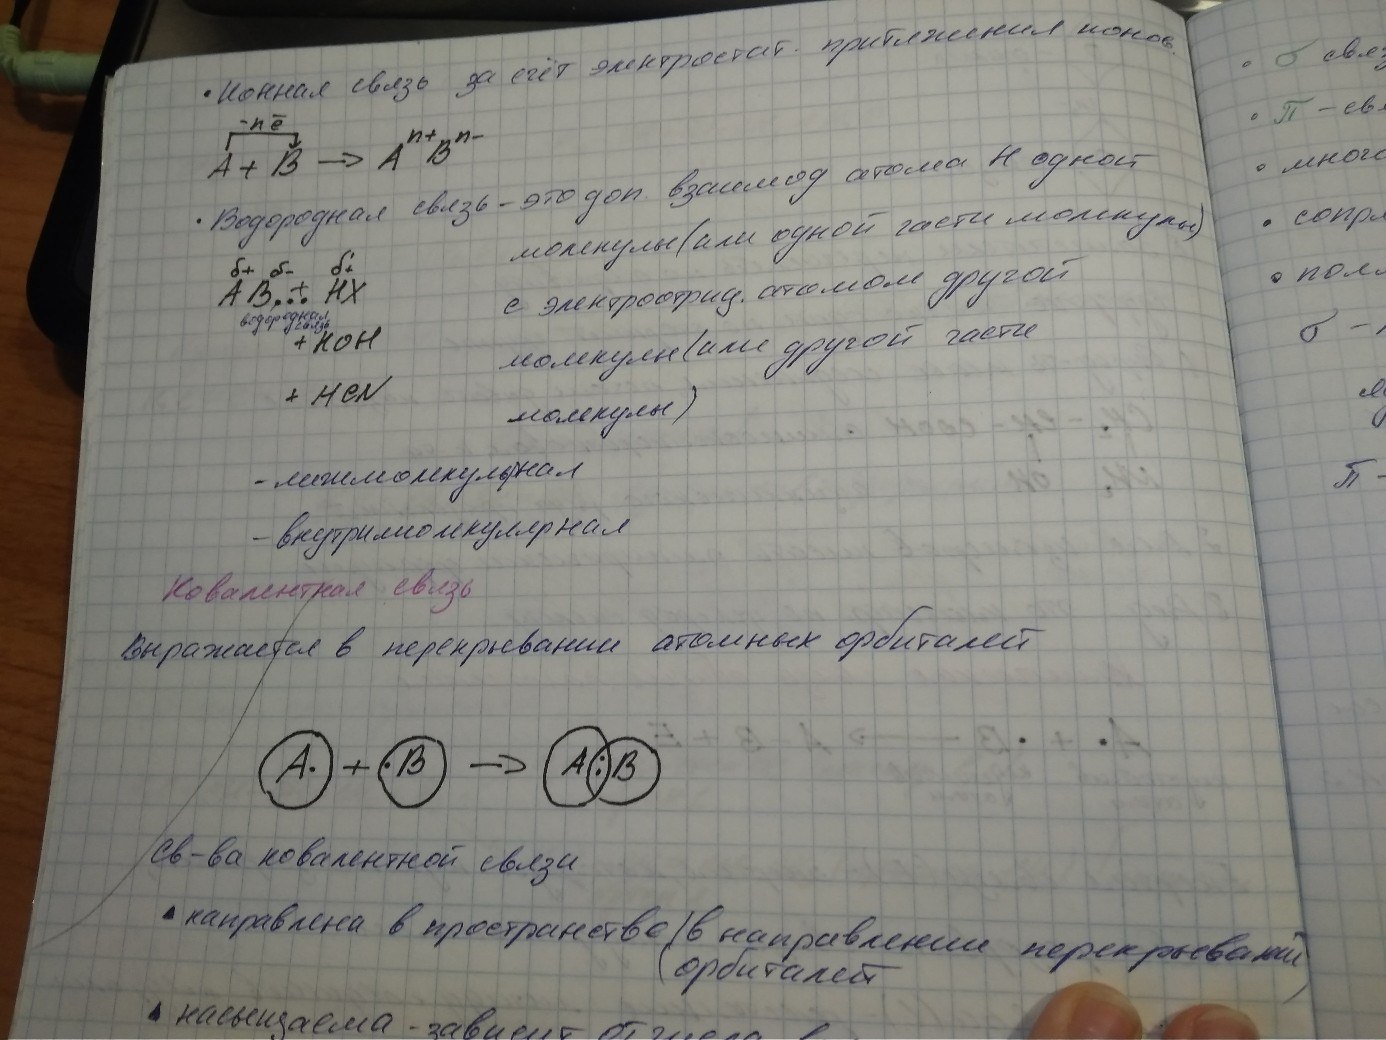 • Ионная связь за счёт электростат. притяжения ионов.
-n ē
A + B → Aⁿ⁺Bⁿ⁻
• Водородная связь - это доп. взаимод атома H одной
молекулы (или одной части молекулы)
с электроотриц. атомом другой
молекулы (или другой части
молекулы)
δ+ δ- δ'+
A B... HX
водородная
связь
+ HOH
+ HCN
- межмолекулярная
- внутримолекулярная
Ковалентная связь
Выражается в перекрывании атомных орбиталей
A· + ·B → A:B
Св-ва ковалентной связи
▲ направлена в пространстве (в направлении перекрываний
орбиталей)
▲ насыщаема - зависит от числа
• σ связ
• π - свя
• много
• сопря
• поля
σ -
π -